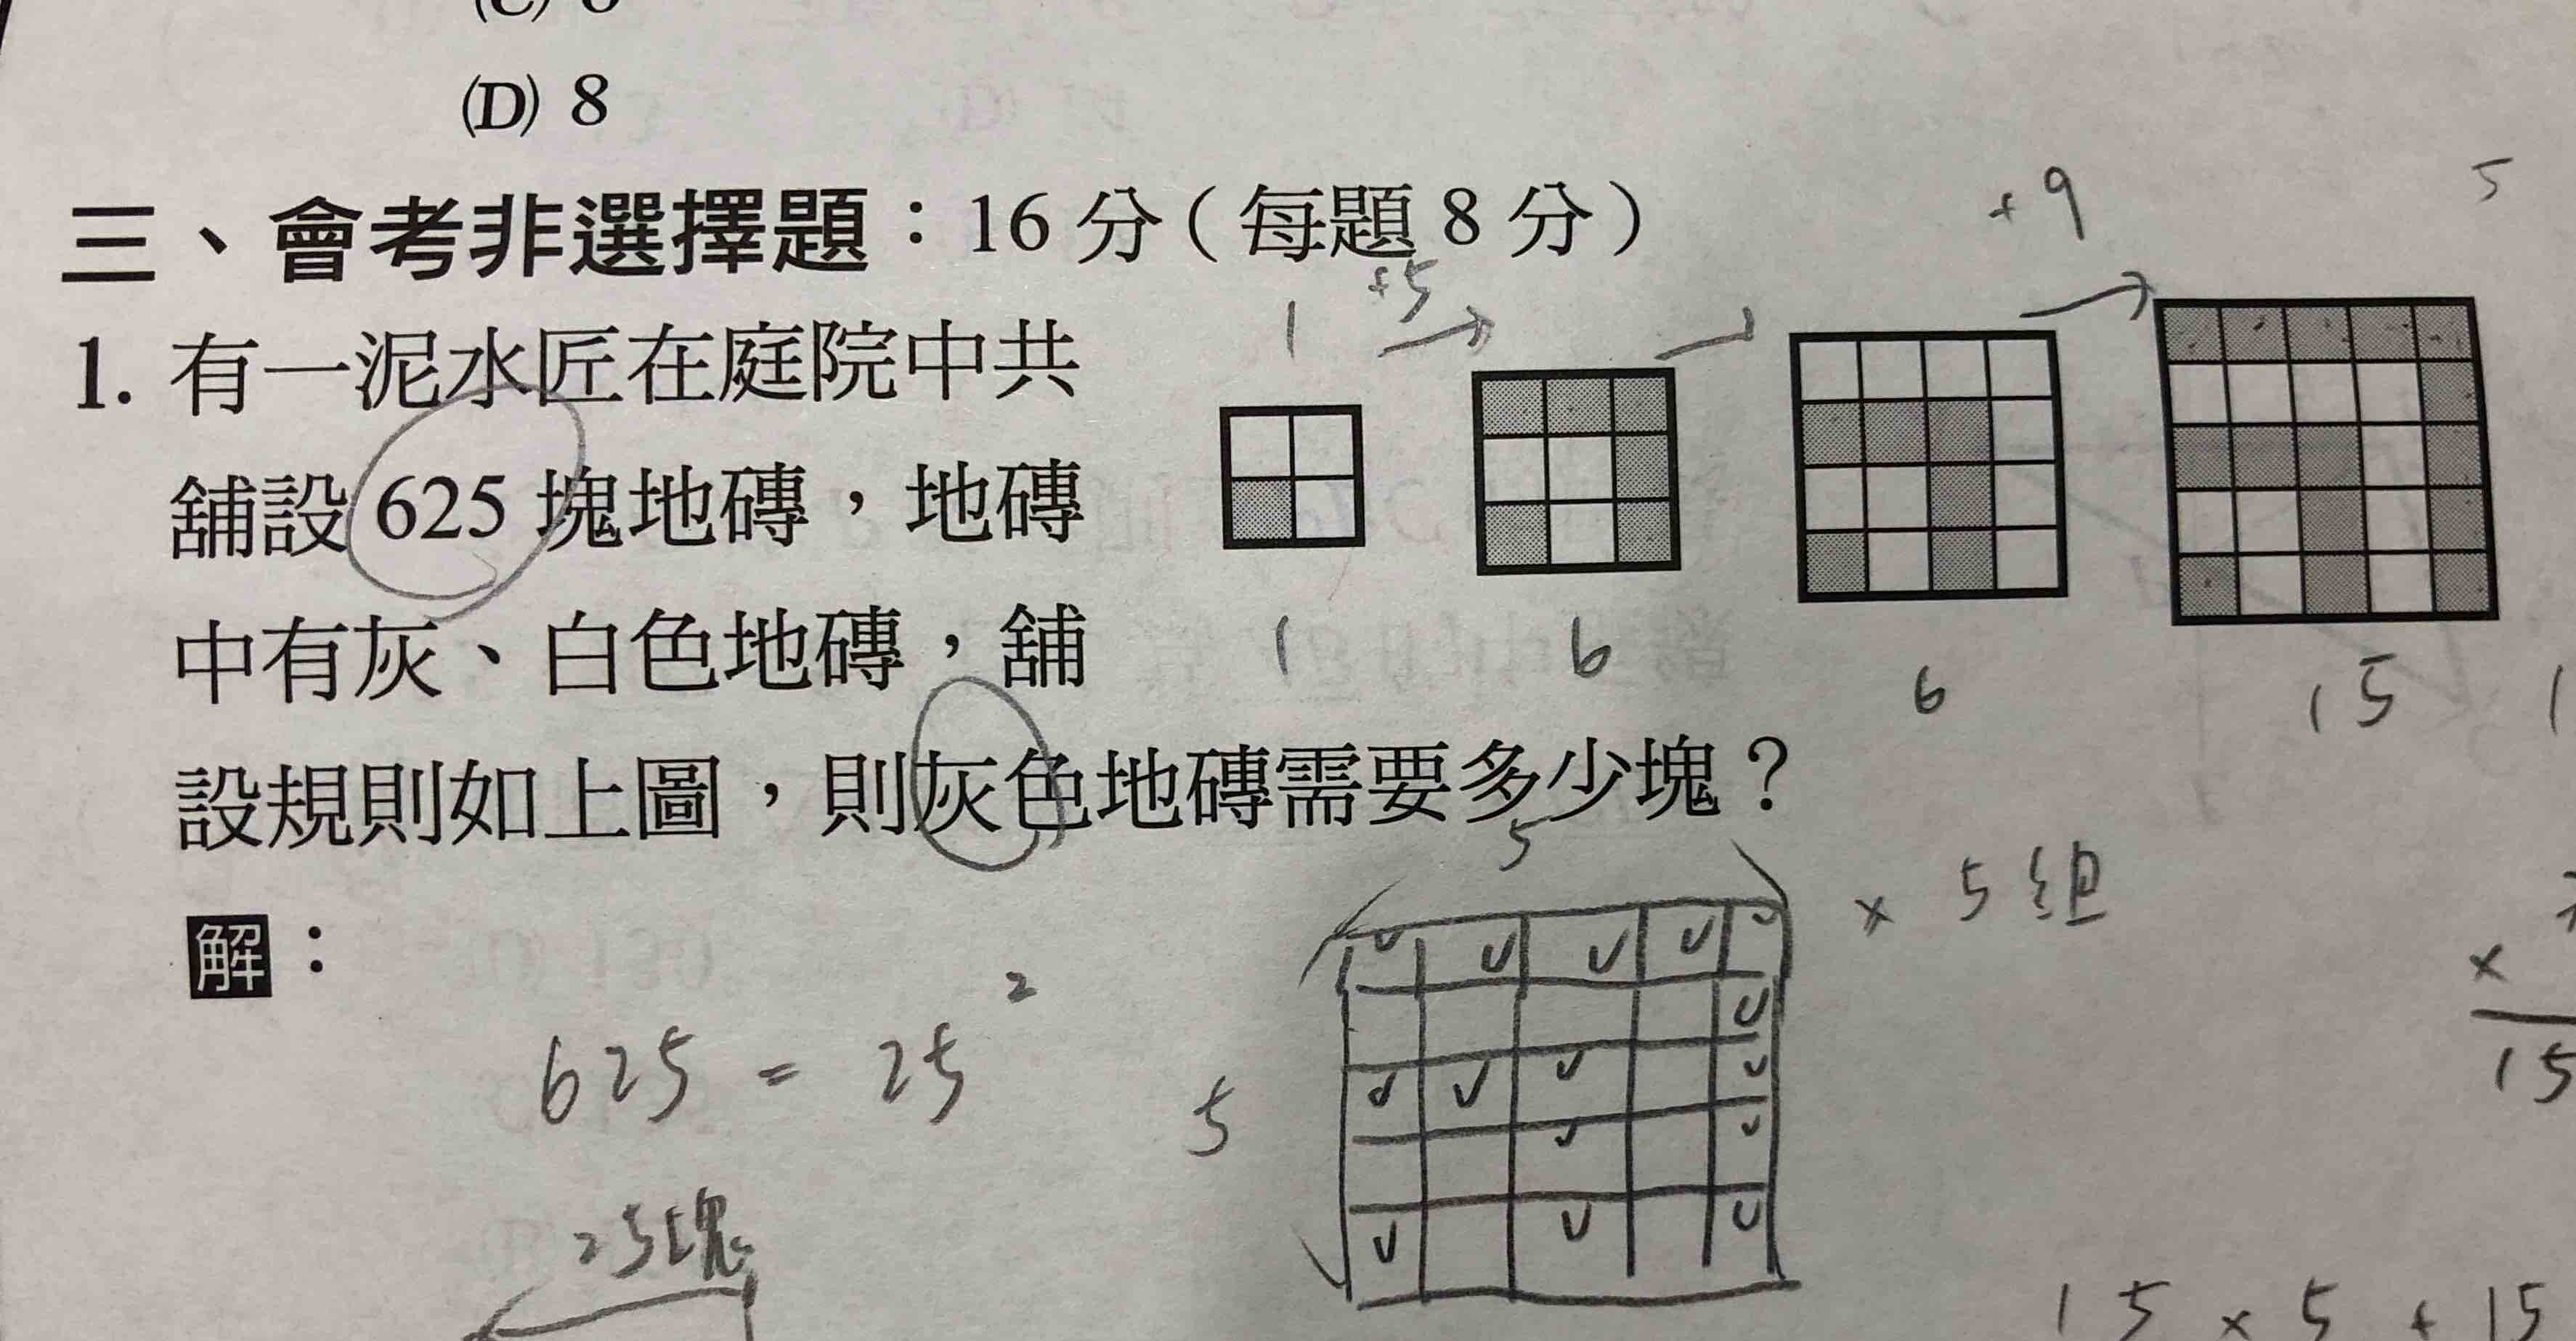 (D) 8
三、會考非選擇題：16 分（每題 8 分）
+9
5
+5
1
1. 有一泥水匠在庭院中共
舖設 625 塊地磚，地磚
中有灰、白色地磚，舖
設規則如上圖，則灰色地磚需要多少塊？
1
6
6
15
1
解：
5
× 5 組
625 = 25²
5
×
15
25塊
15 × 5 + 15